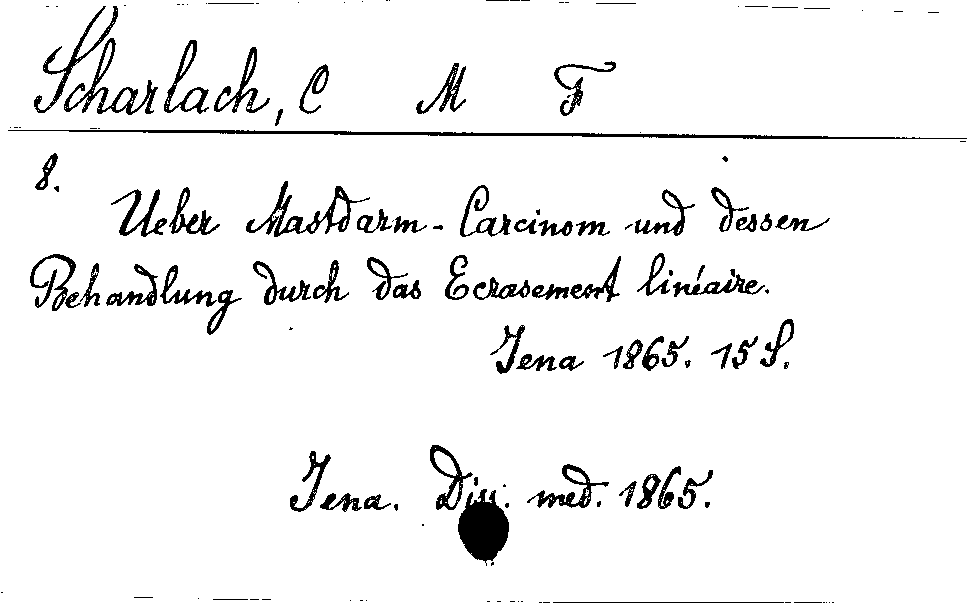 Scharlach, C M F
8.
Ueber Mastdarm-Carcinom und dessen
Behandlung durch das Ecrasement linéaire.
Jena 1865. 15 S.
Jena. Diss. med. 1865.